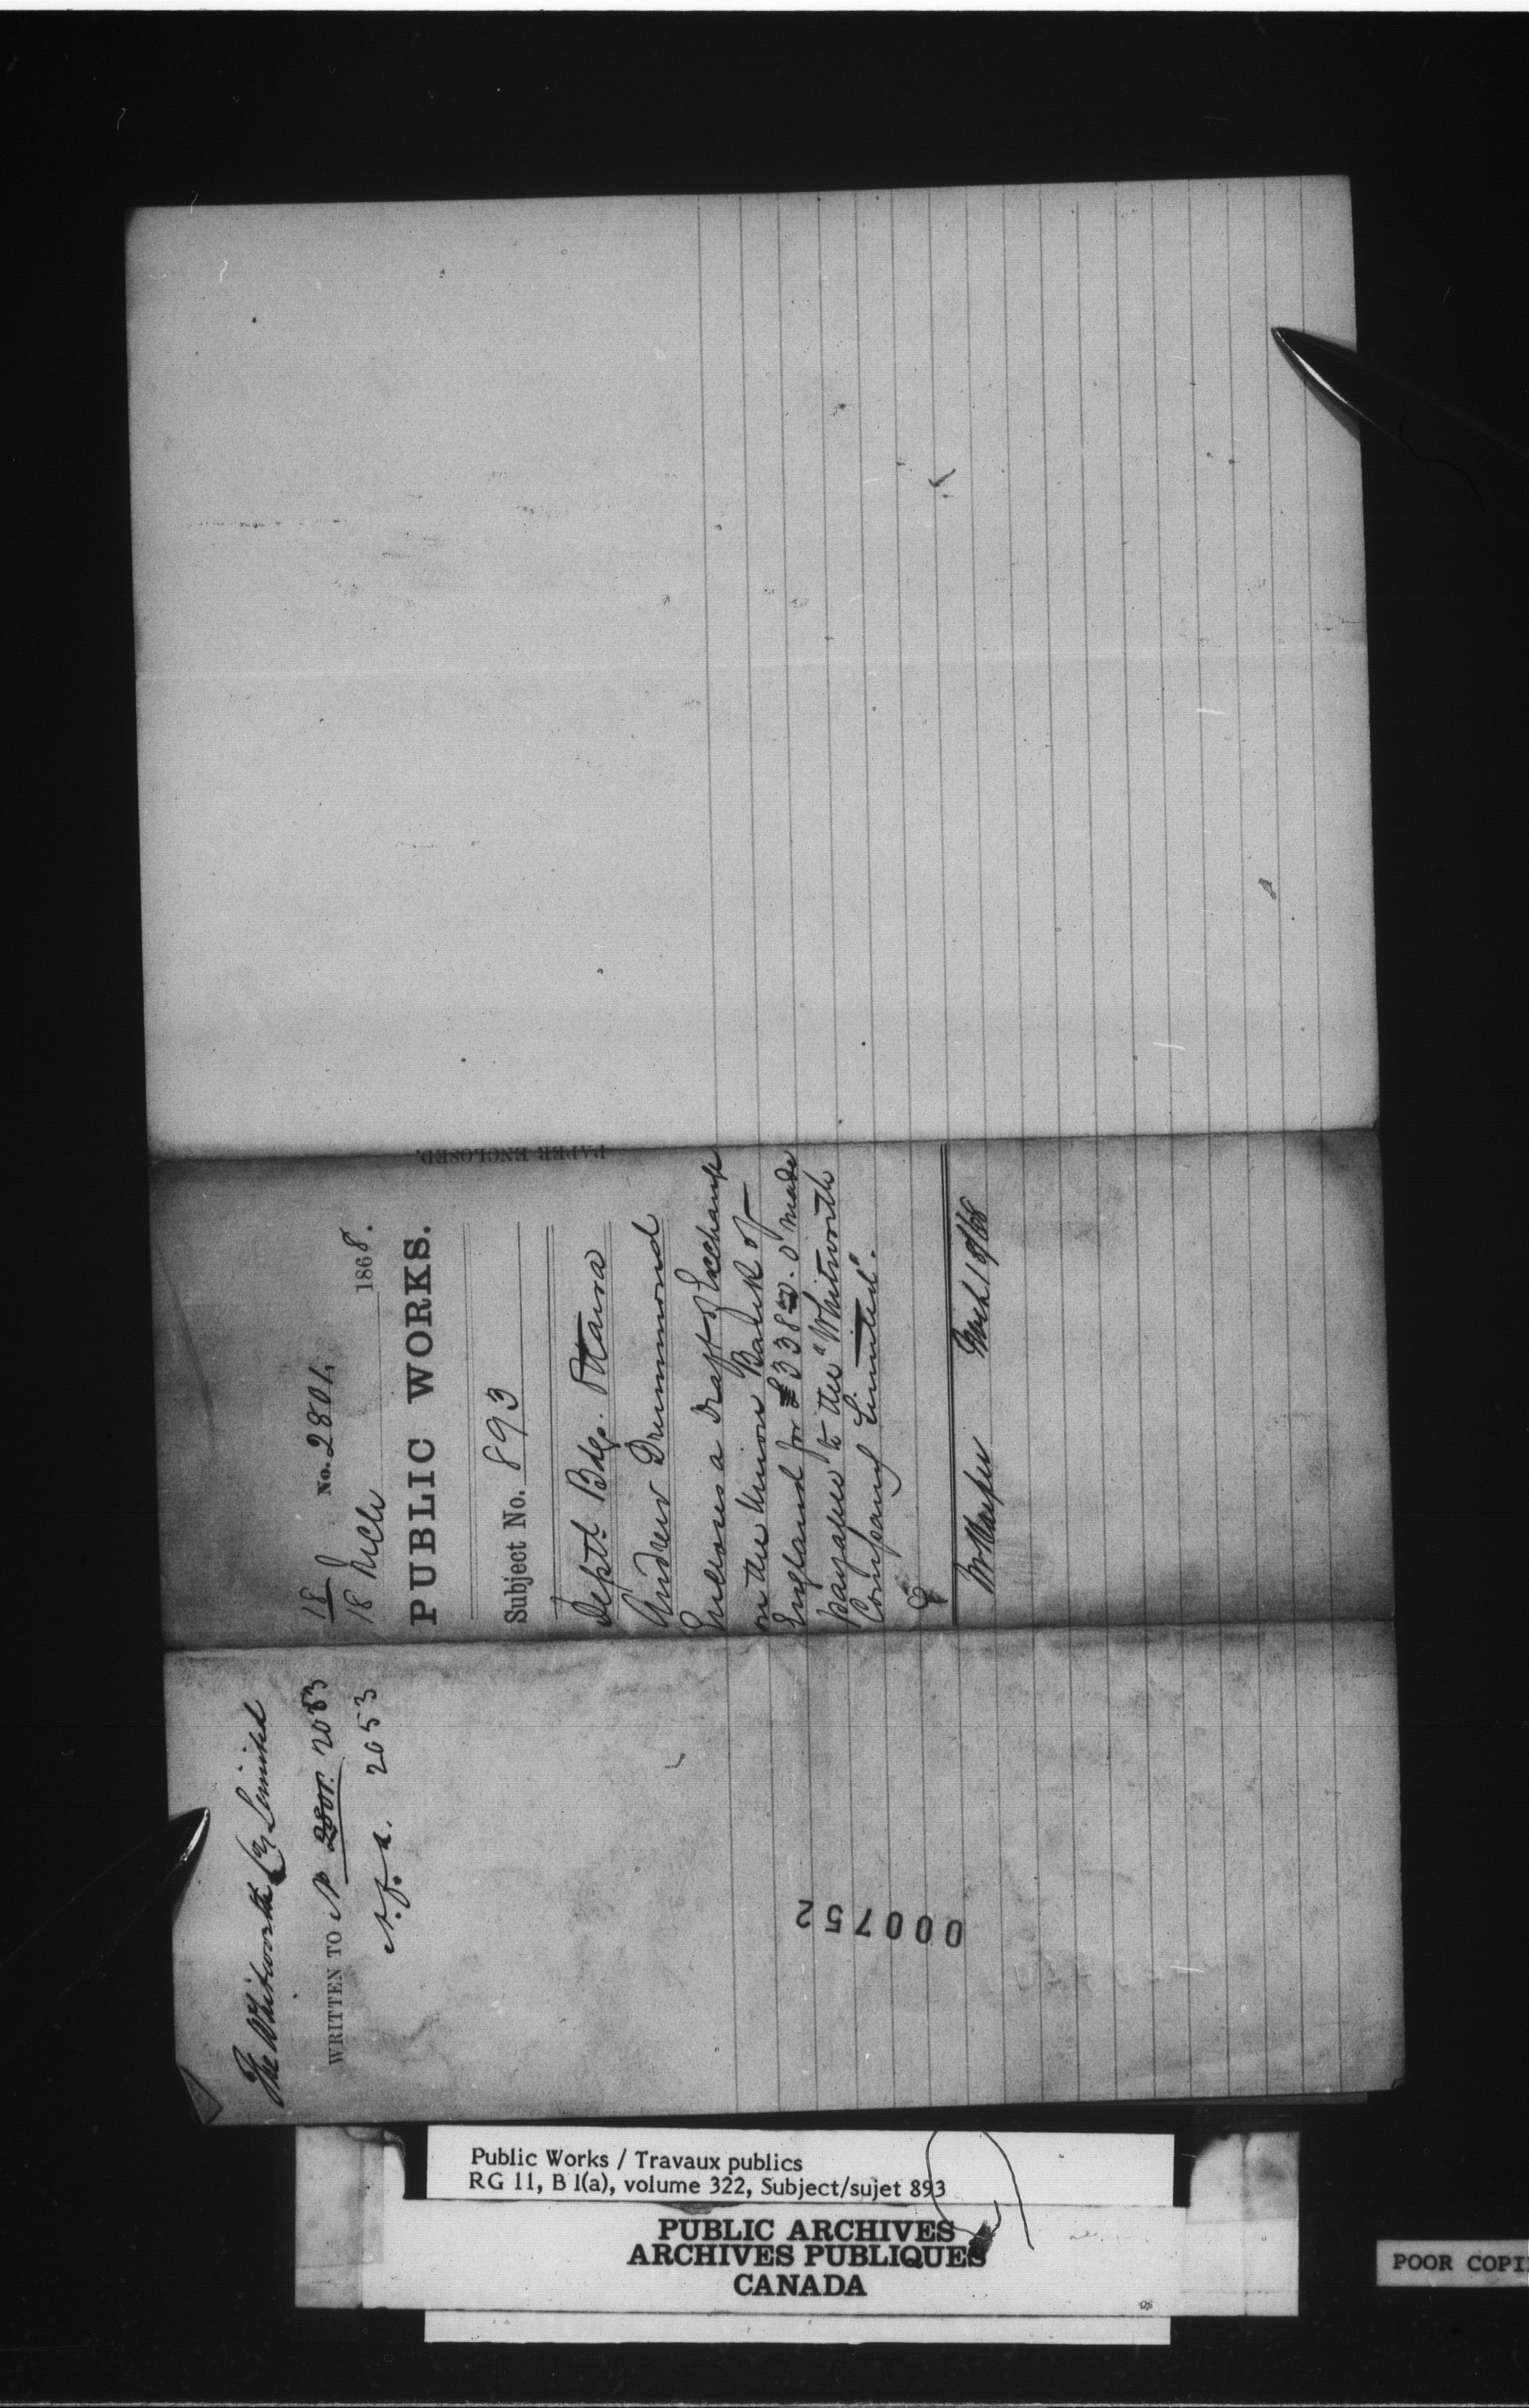 The Whitworth Coy Limited
WRITTEN TO No 2801. 2053
2053
18
No. 2801.
18 Mch 1868.
PUBLIC WORKS.
Subject No. 893
Deptl Bdgs. Ottawa
Andrew Drummond
Encloses a Draft of Exchange
on the Union Bank of
England for £338 . 0 made
payable to the "Whitworth
Company Limited".
Mch 18/68
PAPER ENCLOSED.
000752
Public Works / Travaux publics
RG 11, B 1(a), volume 322, Subject/sujet 893
PUBLIC ARCHIVES
ARCHIVES PUBLIQUES
CANADA
POOR COPI